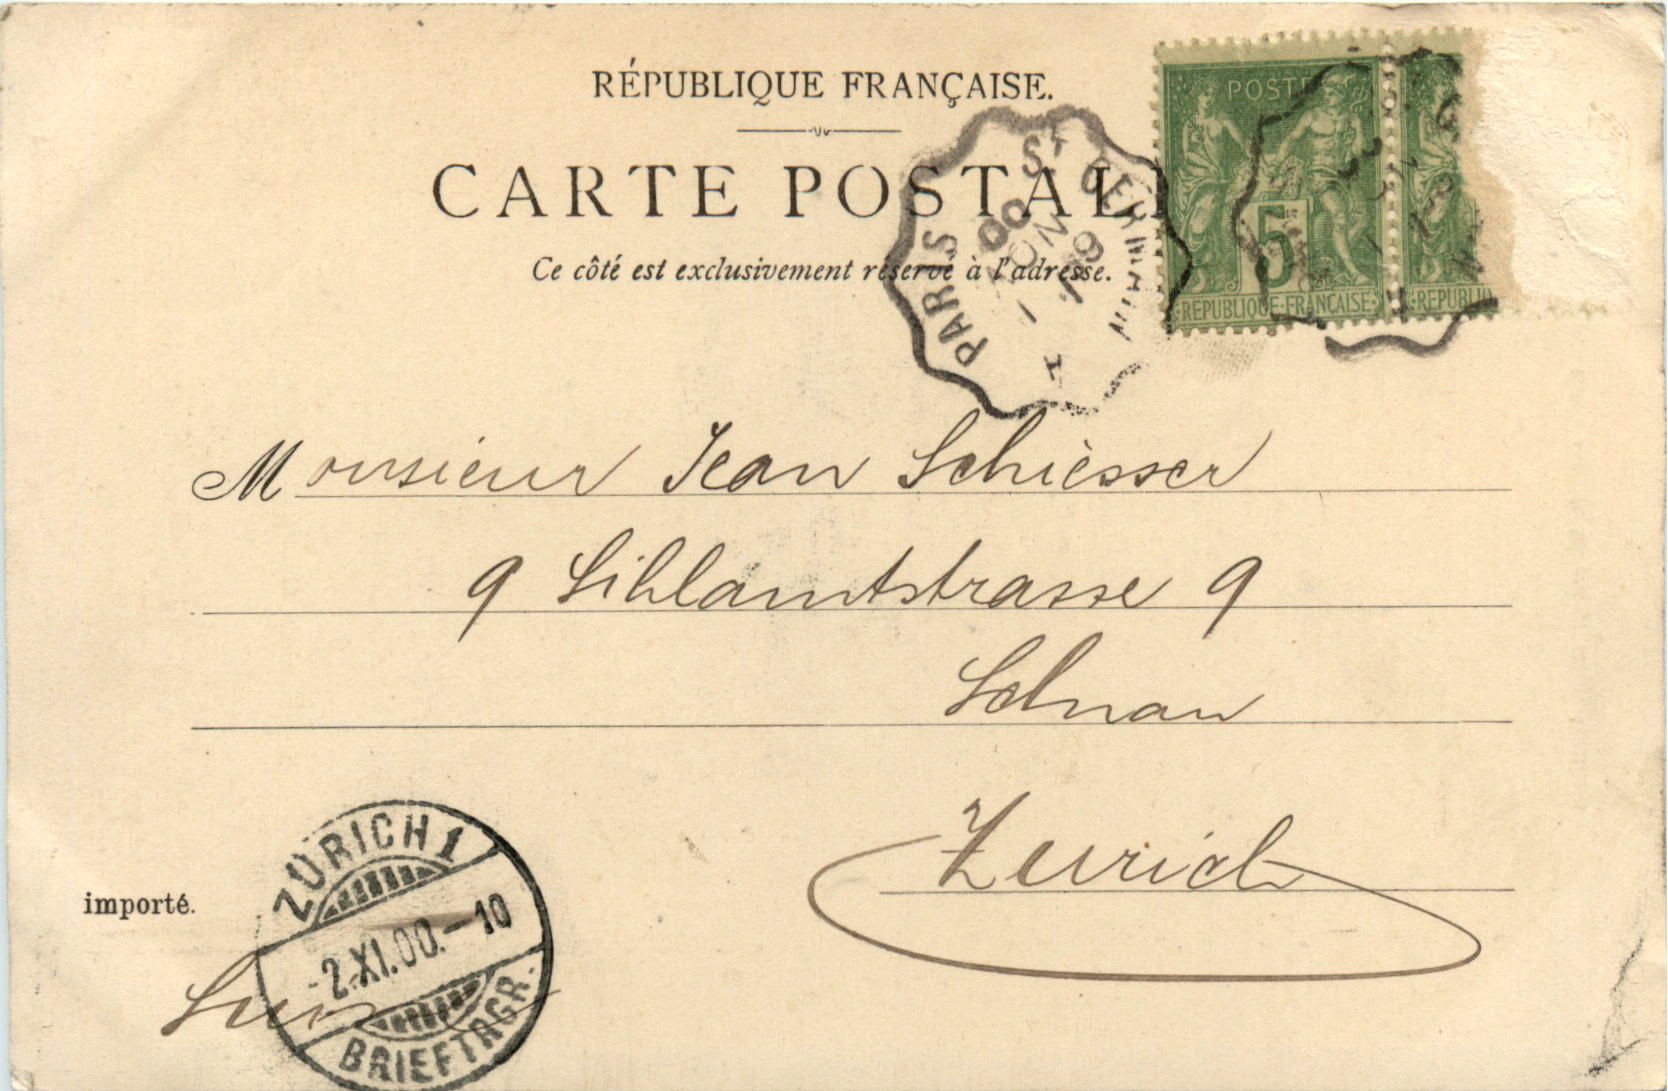 RÉPUBLIQUE FRANÇAISE.
CARTE POSTAL
Ce côté est exclusivement réservé à l'adresse.
POSTE
5
REPUBLIQUE FRANÇAISE
REPUBLIQ
PARIS ST GERMAIN
1 NOV
00
Monsieur Jean Schiesser
9 Sihlamtstrasse 9
Selnau
Zurich
importé.
Suisse
ZÜRICH 1
-2.XI.00.-10
BRIEFTRGR.